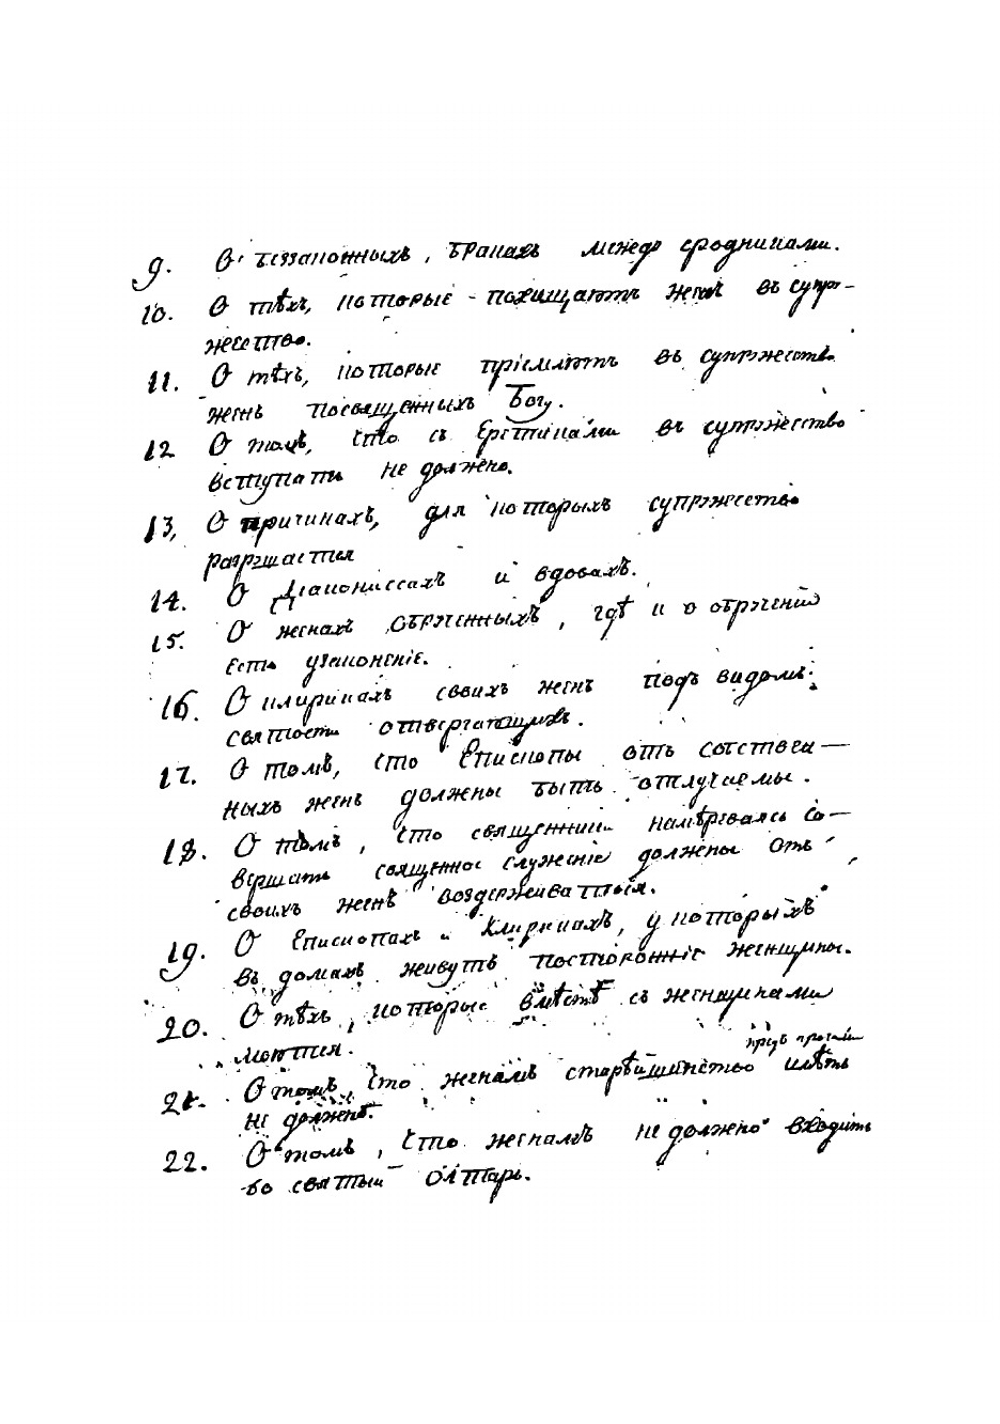 9. О беззаконныхъ, бракахъ между сродниками.
10. О тѣхъ, которые похищаютъ женъ въ супру-
жество.
11. О тѣхъ, которые пріемлютъ въ супружество
женъ посвященныхъ Богу.
12 О томъ, что съ Еретиками въ супружество
вступать не должно.
13, О причинахъ, для которыхъ супружество
разрѣшается
14. О Діакониссахъ и вдовахъ.
15. О женахъ обрученныхъ, гдѣ и о обрученіи
есть узаконеніе.
16. О клирикахъ своихъ женъ подъ видомъ
святости отвергающихъ.
17. О томъ, что Епископы отъ собствен-
ныхъ женъ должены быть отлучаемы.
18. О томъ, что священники намѣреваясь со-
вершать священное служеніе должены отъ
своихъ женъ воздерживаться.
19. О Епископахъ и Клирикахъ, у которыхъ
въ домахъ живутъ постороннее женщины.
20. О тѣхъ, которые вмѣстѣ съ женщинами
моются.
предъ прочими
21. О томъ, что женамъ старѣйшинство имѣть
не должено.
22. О томъ, что женамъ не должено входить
во святый Олтарь.